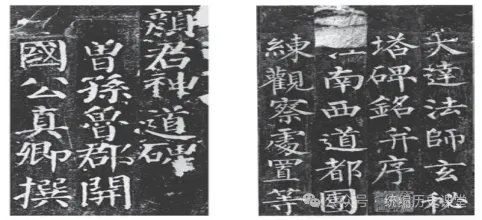 顏君神道碑
曾孫魯郡開
國公真卿撰
大達法師玄秘
塔碑銘并序
江南西道都團
練觀察處置等
公众号 · 统编历史课堂